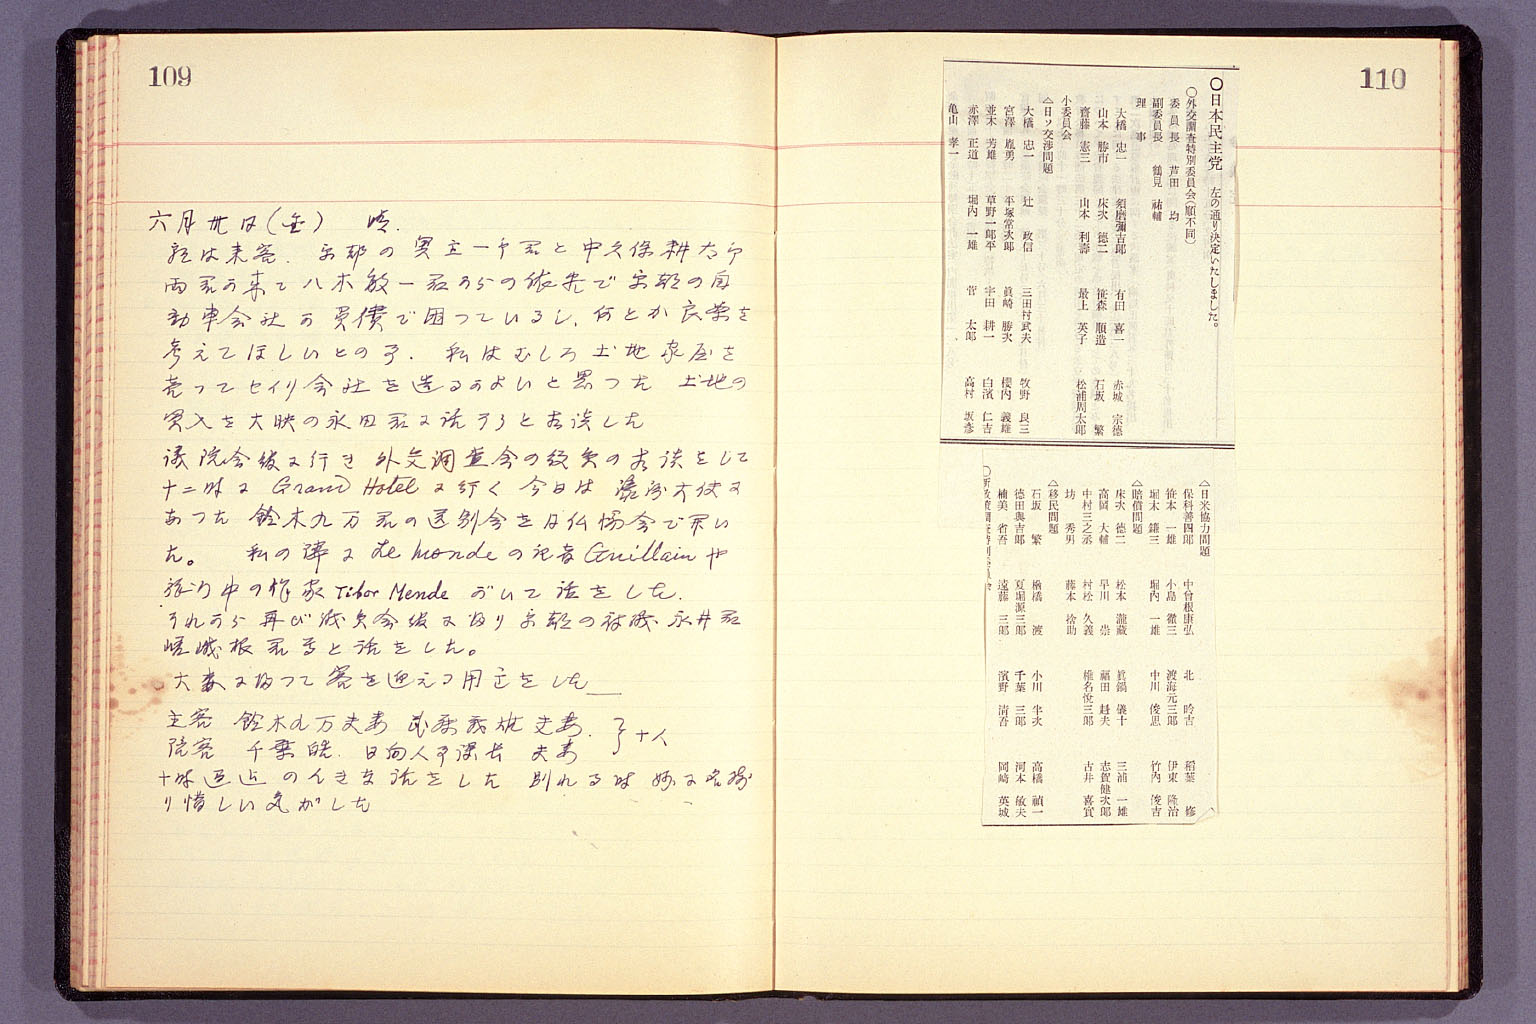 109
六月卅日(金) 晴.
朝は来客. 京都の
両君が来て八木敏一君からの依頼で京都の自
動車会社が負債で困っているし、何とか良策を
考えてほしいとの事. 私はむしろ土地家屋を
売ってセイリ会社を造るがよいと思つた 土地の
買入を大映の永田君に話さうと相談した
議院会館に行き 外交調査会の役員の相談をして
十二時に Grand Hotel に行く 今日は 大使に
あつた 鈴木九万君の送別会を日仏協会で
た。 私の隣に Le Monde の記者 Guillain や
旅行中の作家 Tibor Mende がいて話をした.
それから再び議員会館に帰り京都の 永井君
嵯峨根君等と話をした。
大森に帰つて客を迎える用意をした
主客 鈴木九万夫妻 夫妻.
陪客 千葉皓. 日向人事課長 夫妻 } 十人
十時過迄のんきな話をした 別れる時 妙に名残
り惜しい気がした
110
○日本民主党 左の通り決定いたしました。
○外交調査特別委員会(順不同)
委員長 芦田 均
副委員長 鶴見 祐輔
理事
大橋 忠一 須磨彌吉郎 有田 喜一 赤城 宗徳
山本 勝市 床次 徳二 笹森 順造 石坂 繁
齋藤 憲三 山本 利壽 最上 英子 松浦周太郎
小委員会
△日ソ交渉問題
大橋 忠一 辻 政信 三田村武夫 牧野 良三
宮澤 胤勇 平塚常次郎 眞崎 勝次 櫻内 義雄
並木 芳雄 草野一郎平 宇田 耕一 白濱 仁吉
赤澤 正道 堀内 一雄 菅 太郎 高村 坂彦
亀山 孝一
△日米協力問題
保科善四郎 中曾根康弘 北 昤吉 稻葉 修
笹本 一雄 小島 徹三 渡海元三郎 伊東 隆治
堀木 鎌三 堀内 一雄 中川 俊思 竹内 俊吉
△賠償問題
床次 徳二 松本 瀧藏 眞鍋 儀十 三浦 一雄
高岡 大輔 早川 崇 福田 赳夫 志賀健次郎
中村三之丞 村松 久義 椎名悅三郎 古井 喜實
坊 秀男 藤本 捨助
△移民問題
石坂 繁 楢橋 渡 小川 半次 高橋 禎一
德田與吉郎 夏堀源三郎 千葉 三郎 河本 敏夫
楠美 省吾 遠藤 三郎 濱野 清吾 岡崎 英城